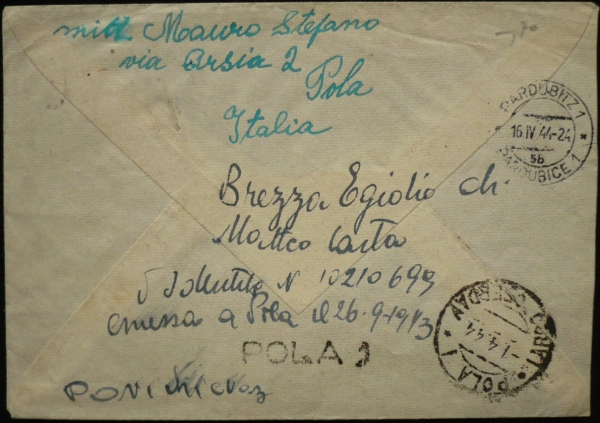 mitt. Mauro Stefano
via Arsia 2
Pola
Italia
PARDUBITZ 1
16 IV 44-24
5b
PARDUBICE 1
Brezza Egidio ch.
Matteo
Identità N 10210699
emessa a Pola il 26-9-1943
POLA 1
-1.4.44
POLA